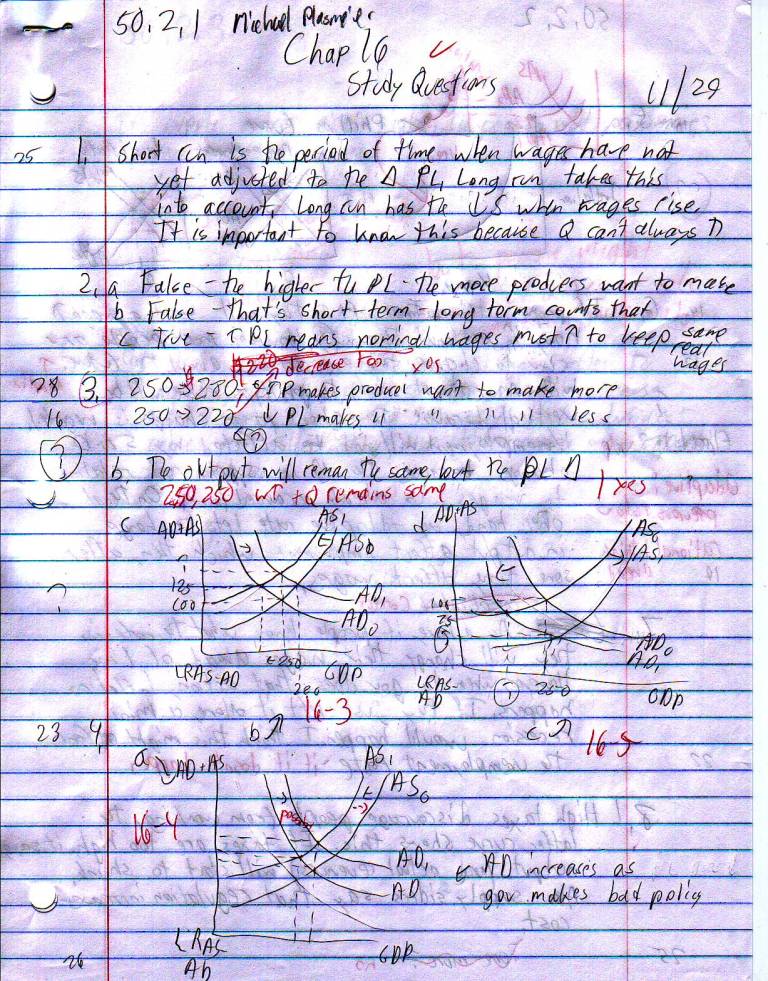 50.2.1 Michael Plasmeier
Chap 16
Study Questions
11/29
25 1. Short run is the period of time when wages have not
yet adjusted to the Δ PL. Long run takes this
into account. Long run has the ↓S when wages rise.
It is important to know this because Q can't always ↑
2. a False - the higher the PL - the more producers want to make
b False - that's short-term - long term counts that
c True - ↑ PL means nominal wages must ↑ to keep same
real
wages
decrease too yes
28 3. 250 → 280, ↑P makes producer want to make more
16 250 → 220 ↓ PL makes " " " " less
?
? b. The output will remain the same, but the PL ↑
250, 250 w↑ + Q remains same yes
c AD+AS AS1 d AD+AS AS0
AS0 AS1
125
100 AD1 100
AD0 75 AD0
? AD1
←250 GDP 250
LRAS-AD 280 LRAS- GDP
AD
16-3
23 4. b↗ c↗ 16-5
a AD+AS AS1
AS0
16-4
AD1 ← AD increases as
AD gov makes bad policy
LRAS GDP
AD
26